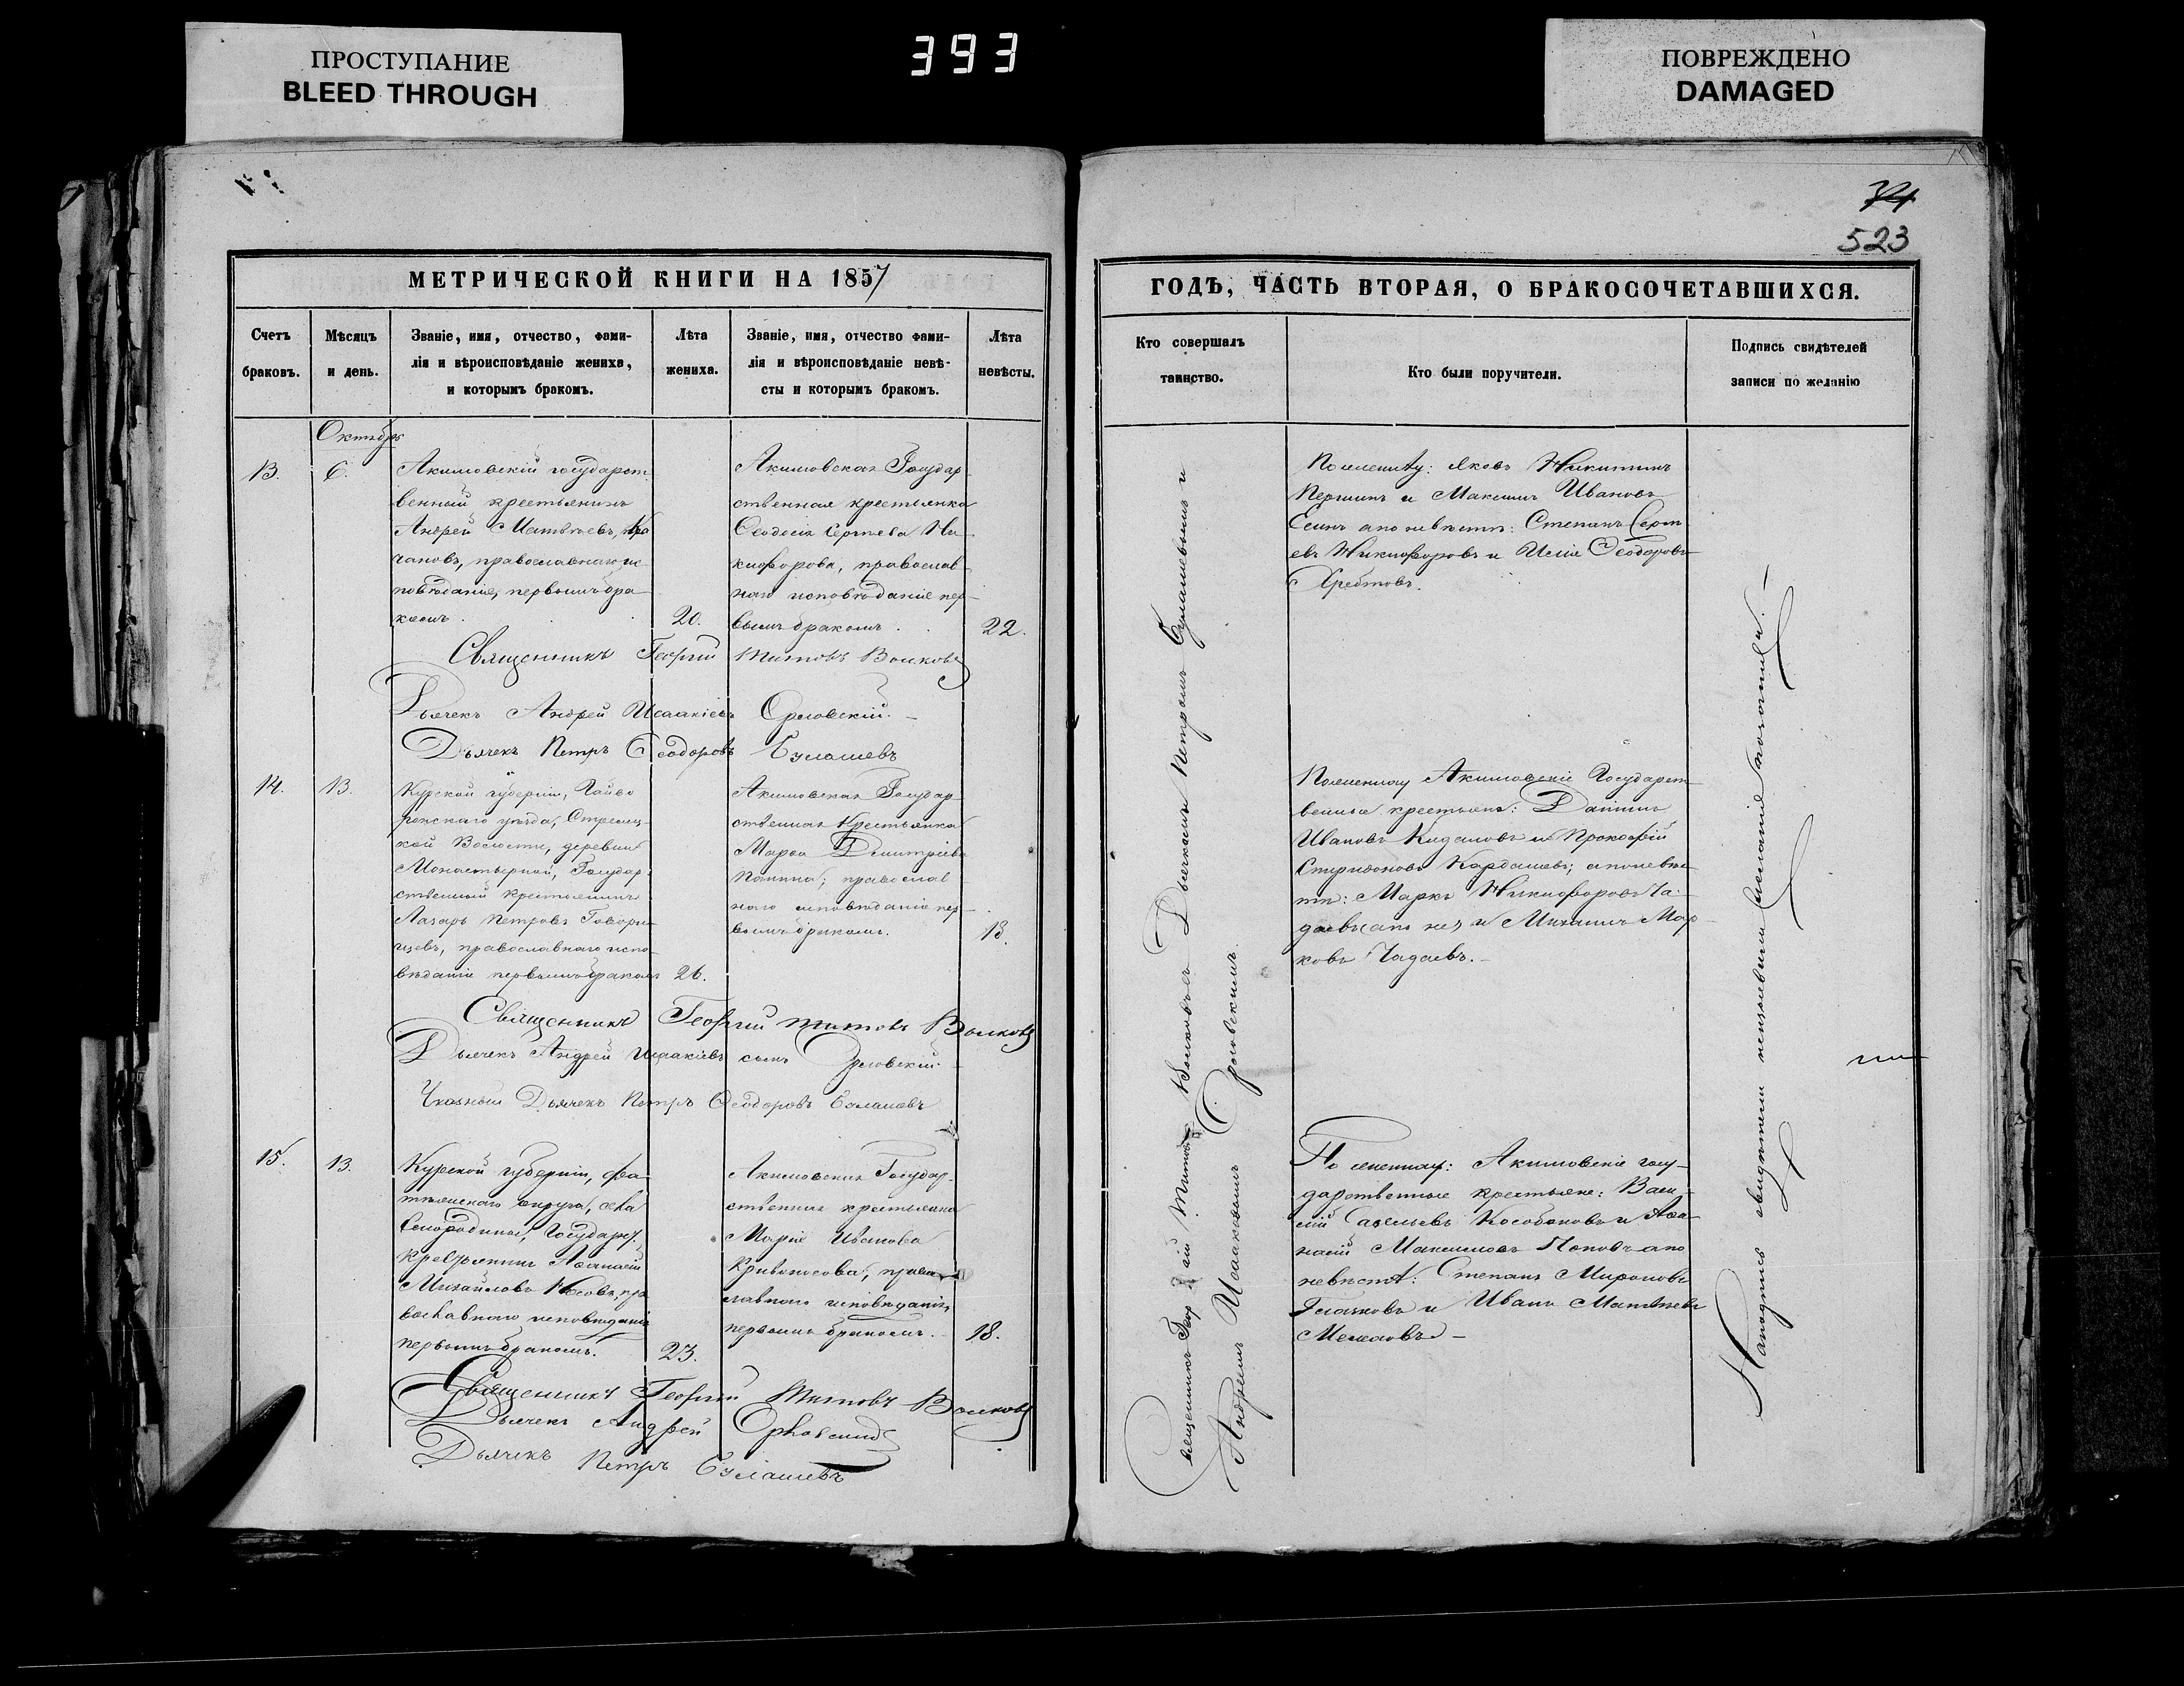 ПРОСТУПАНИЕ
BLEED THROUGH
393
ПОВРЕЖДЕНО
DAMAGED
74
523
МЕТРИЧЕСКОЙ КНИГИ НА 1857
Счетъ
браковъ.
Мѣсяцъ
и день.
Званіе, имя, отчество, фами-
лія и вѣроисповѣданіе жениха,
и которымъ бракомъ.
Лѣта
жениха.
Званіе, имя, отчество фами-
лія и вѣроисповѣданіе невѣ-
сты и которымъ бракомъ.
Лѣта
невѣсты.
Октябрь
13.
6.
Акимовскій государст
венный крестьянинъ
Андрей Матвѣевъ
православнаго ис
повѣданія, первымъ бра
комъ.
20.
Акимовская Государ
ственная крестьянка
Ѳеодосія Сергѣева Ни
кифорова, православ
наго исповѣданія пер
вымъ бракомъ.
22.
Священникъ Георгій Титовъ Волковъ
Дьячекъ Андрей Исаакіевъ Орловскій.
Дьячекъ Петръ Ѳеодоровъ Булашевъ
14.
13.
Курской губерніи, Гайво
ронскаго уѣзда, Стрѣлец
кой Волости, деревни
Монастырной, Государ
ственный крестьянинъ
Лазарь Петровъ Говори
щевъ, православнаго испо
вѣданія первымъ бракомъ
26.
Акимовская Государ
ственная крестьянка
Марѳа Димитріева
Панина, православ
наго исповѣданія пер
вымъ бракомъ.
18.
Священникъ Георгій Титовъ Волковъ
Дьячекъ Андрей Исаакіевъ сынъ Орловскій.
Дьячекъ Петръ Ѳеодоровъ Булашевъ
15.
13.
Курской губерніи, Фа
тежскаго округа, села
Смородина, Государ.
крестьянинъ Аѳанасій
Михайловъ Носовъ, пра
вославнаго исповѣданія
первымъ бракомъ.
23.
Акимовская Государ
ственная крестьянка
Марія Иванова
Кривоносова, право
славнаго исповѣданія,
первымъ бракомъ.
18.
Священникъ Георгій Титовъ Волковъ
Дьячекъ Андрей Орловскій
Дьячекъ Петръ Булашевъ
ГОДЪ, ЧАСТЬ ВТОРАЯ, О БРАКОСОЧЕТАВШИХСЯ.
Кто совершалъ
таинство.
Кто были поручители.
Подпись свидѣтелей
записи по желанію
Священникъ Георгій Титовъ Волковъ съ Дьячками Петромъ Булашевымъ и
Андреемъ Исааковымъ Орловскимъ.
По жениху: Яковъ Никитинъ
Першинъ и Максимъ Ивановъ
Есинъ а по невѣстѣ: Степанъ Серге
евъ Никифоровъ и Илія Ѳеодоровъ
Хребтовъ.
По жениху Акимовскіе Государст
венные крестьяне: Даніилъ
Ивановъ и Прокофій
Спиридоновъ Кардашевъ; а по невѣс
тѣ: Маркъ Никифоровъ Ча
даевъ и Михаилъ Мар
ковъ Чадаевъ.
По жениху: Акимовскіе госу-
дарственные крестьяне: Васи
лій Савельевъ Кособоковъ и Аѳа
насій Максимовъ Поповъ а по
невѣстѣ: Степанъ Мироновъ
и Иванъ Матвѣевъ
свидѣтели неизъявили желанія